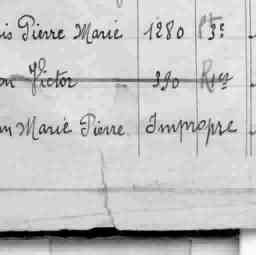 is Pierre Marie 1280 Pt 3e
on Victor 390
n Marie Pierre Impropre